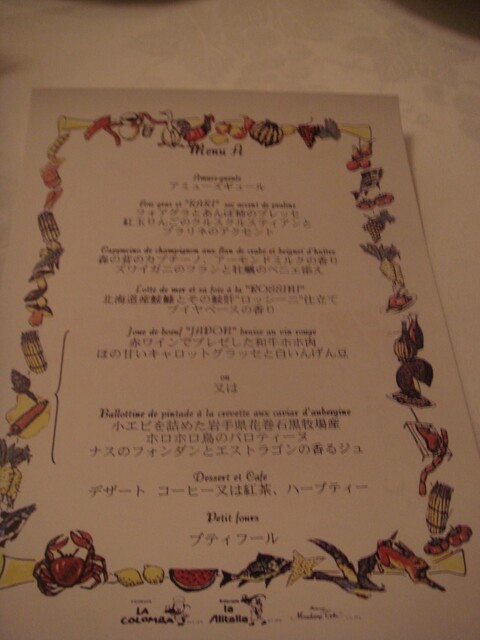 Menu A
Amuse-gueule
アミューズギュール
Foie gras et "KAKI" un accent de praline
フォアグラとあんぽ柿のプレッセ
紅玉りんごのクルスクルスティアンと
プラリネのアクセント
Cappuccino de champignon aux flan de crabe et beignet d'huître
森の茸のカプチーノ、アーモンドミルクの香り
ズワイガニのフランと牡蠣のベニェ添え
Lotte de mer et sa foie à la "ROSSINI"
北海道産鮟鱇とその鮟肝"ロッシーニ"仕立て
ブイヤベースの香り
Joue de boeuf "JAPON" braisé au vin rouge
赤ワインでブレゼした和牛ホホ肉
ほの甘いキャロットグラッセと白いんげん豆
ou
又は
Ballottine de pintade à la crevette aux caviar d'aubergine
小エビを詰めた岩手県花巻石黒牧場産
ホロホロ鳥のバロティーヌ
ナスのフォンダンとエストラゴンの香るジュ
Dessert et Cafe
デザート コーヒー又は紅茶、ハーブティー
Petit fours
プティフール
LA COLOMBA
la Alitalia